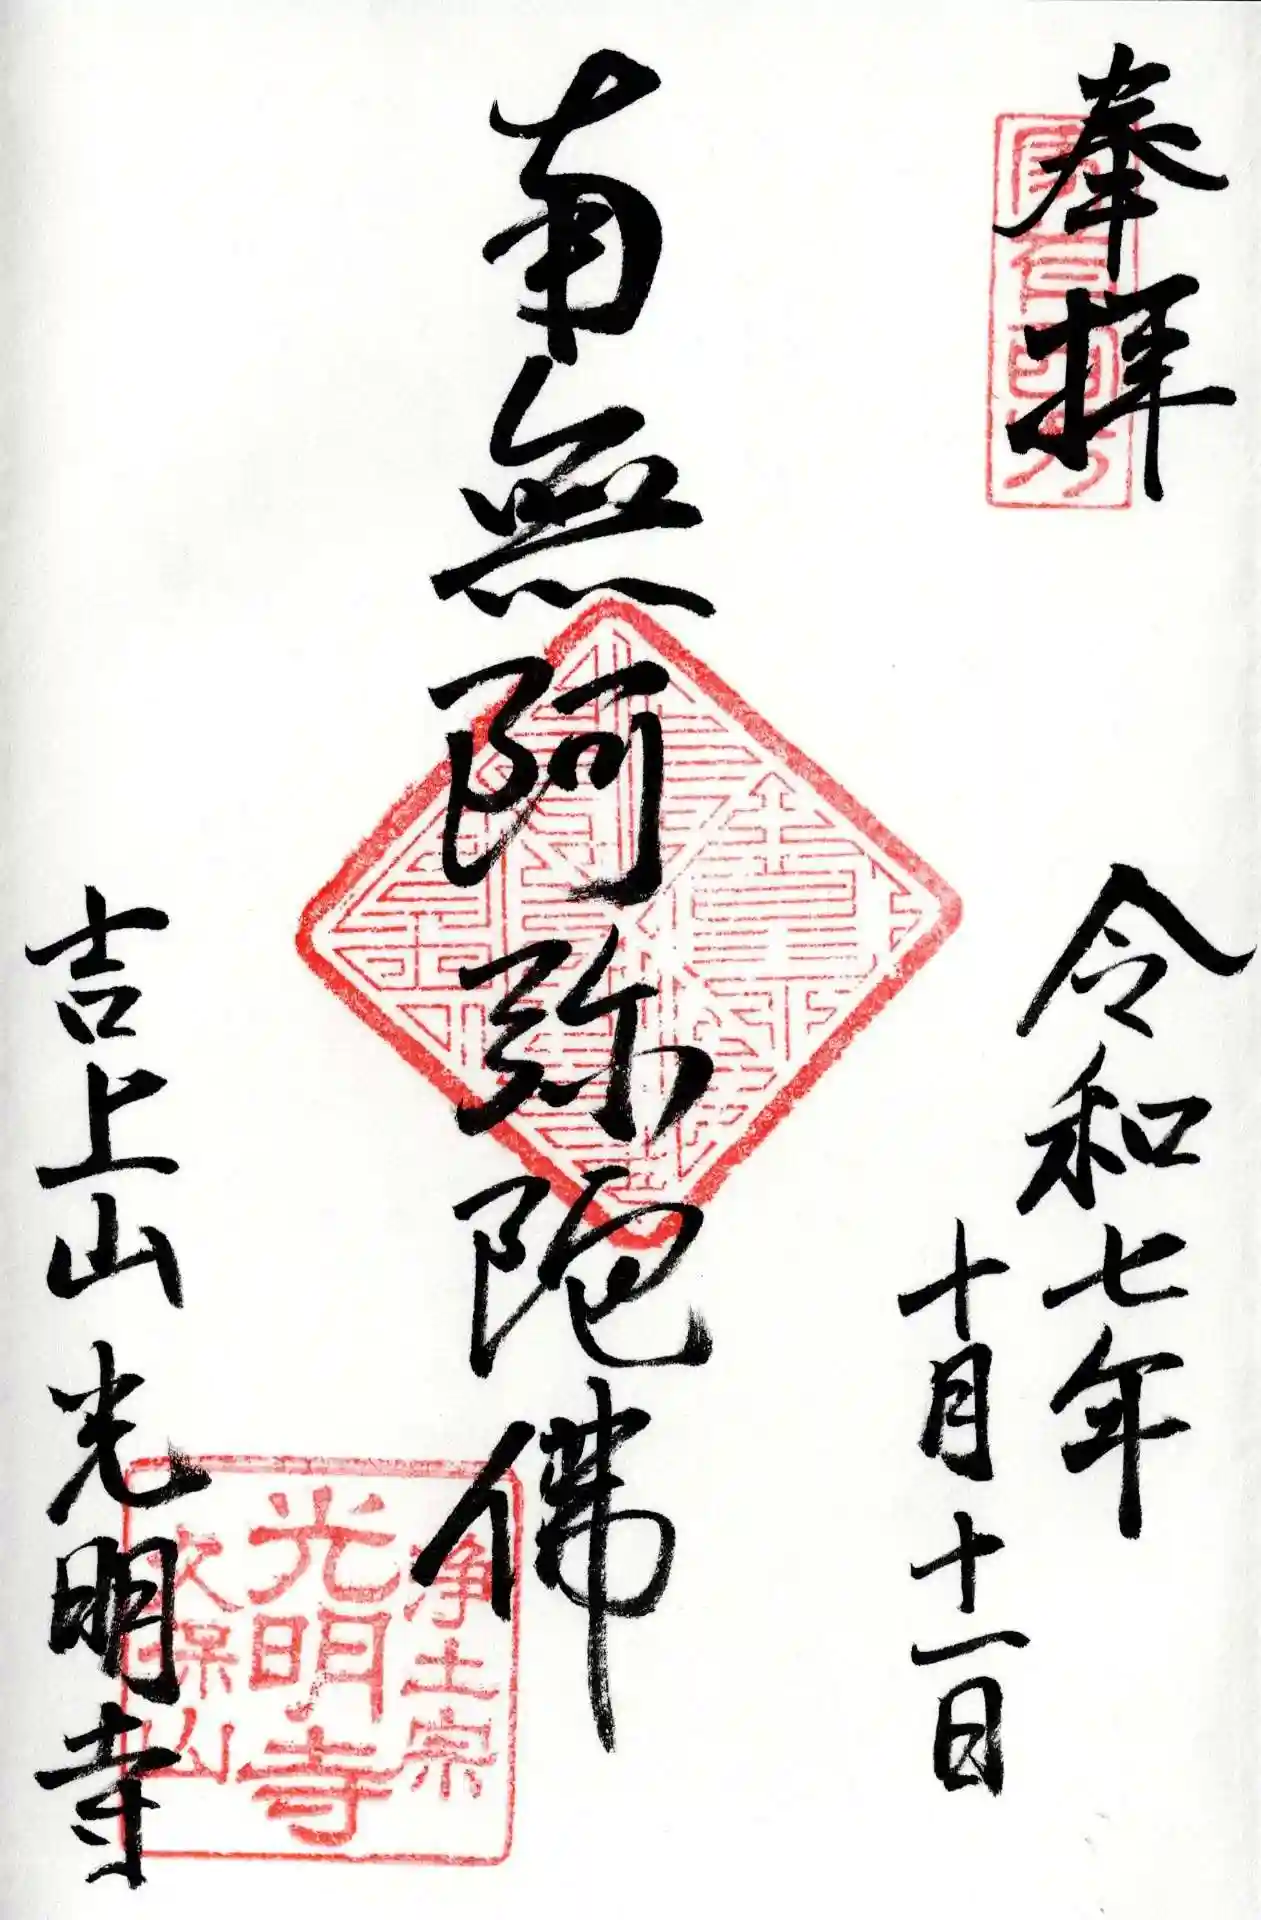 奉拝
令和七年
十月十一日
南無阿弥陀佛
浄土宗
光明寺
吉上山光明寺